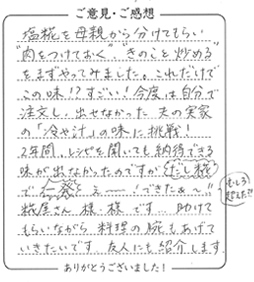 ご意見・ご感想
塩糀を母親から分けてもらい
"肉をつけておく"、"きのこと炒める"
をまずやってみました。これだけで
この味!?すごい!今度は自分で
注文し、出せなかった 夫の実家
の「冷や汁」の味に挑戦!
2年間、レシピを聞いても納得できる
味が出なかったのですが だし糀
で一発 えーー!できたぁ〜"
糀屋さん 様 様 です… 助けて
もらいながら 料理の腕もあげて
いきたいです 友人にも紹介します
もしろ
超えた!?
ありがとうございました!